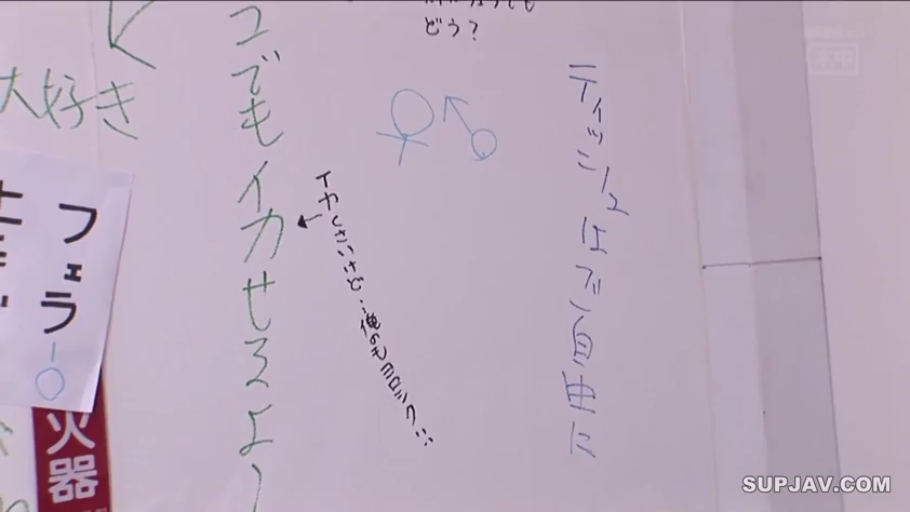 どう？
ティッシュはご自由に
コでもイカせるよ〜
イカくさいけど…俺のもヨロシク…
大好き
フェラ
火器
SUPJAV.COM